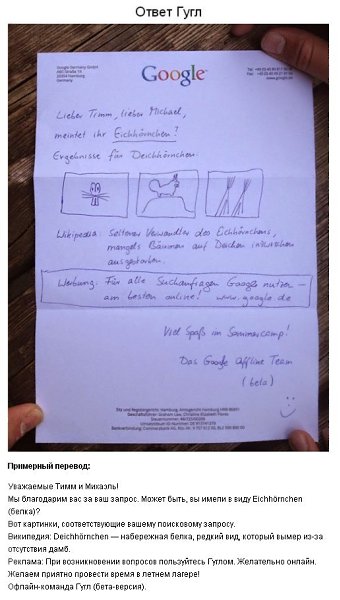 Ответ Гугл
Google Germany GmbH
ABC-Straße 19
20354 Hamburg
Germany
Google™
www.google.de
Lieber Timm, lieber Michael,
meintet ihr Eichhörnchen?
Ergebnisse für Deichhörnchen:
Wikipedia: Seltener Verwandter des Eichhörnchens,
mangels Bäumen auf Deichen inzwischen
ausgestorben.
Werbung: Für alle Suchanfragen Google nutzen –
am besten online! www.google.de
Viel Spaß im Sommercamp!
Das Google Offline Team
(beta)
Sitz und Registergericht: Hamburg, Amtsgericht Hamburg HRB 86891
Geschäftsführer: Graham Law, Christine Elizabeth Flores
Примерный перевод:
Уважаемые Тимм и Микаэль!
Мы благодарим вас за ваш запрос. Может быть, вы имели в виду Eichhörnchen
(белка)?
Вот картинки, соответствующие вашему поисковому запросу.
Википедия: Deichhörnchen — набережная белка, редкий вид, который вымер из-за
отсутствия дамб.
Реклама: При возникновении вопросов пользуйтесь Гуглом. Желательно онлайн.
Желаем приятно провести время в летнем лагере!
Офлайн-команда Гугл (бета-версия).